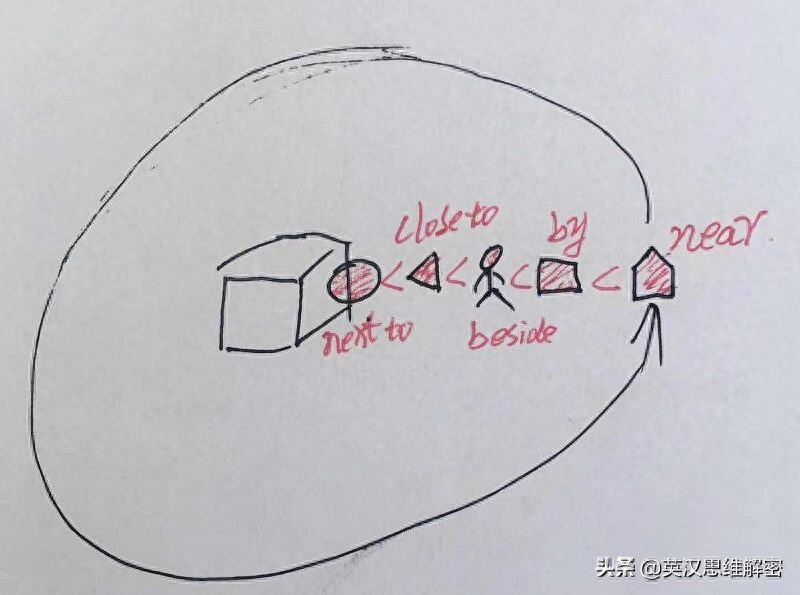 close to
by
near.
< < < <
next to
beside
头条 @英汉思维解密